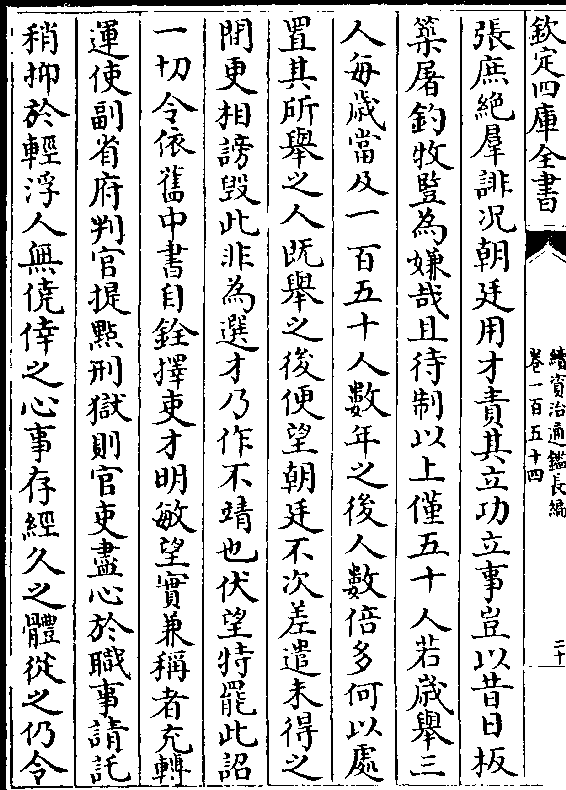 欽定四庫全書
續資治通鑑長編
卷一百五十四
二十
張庶絶羣誹况朝廷用才責其立功立事豈以昔日板
築屠釣牧豎為嫌哉且待制以上僅五十人若歲舉三
人每歲當及一百五十人數年之後人數倍多何以處
置其所舉之人既舉之後便望朝廷不次差遣未得之
間更相謗毁此非為選才乃作不靖也伏望特罷此詔
一切令依舊中書自銓擇吏才明敏望實兼稱者充轉
運使副省府判官提㸃刑獄則官吏盡心於職事請託
稍抑於輕浮人無僥倖之心事存經久之體從之仍令